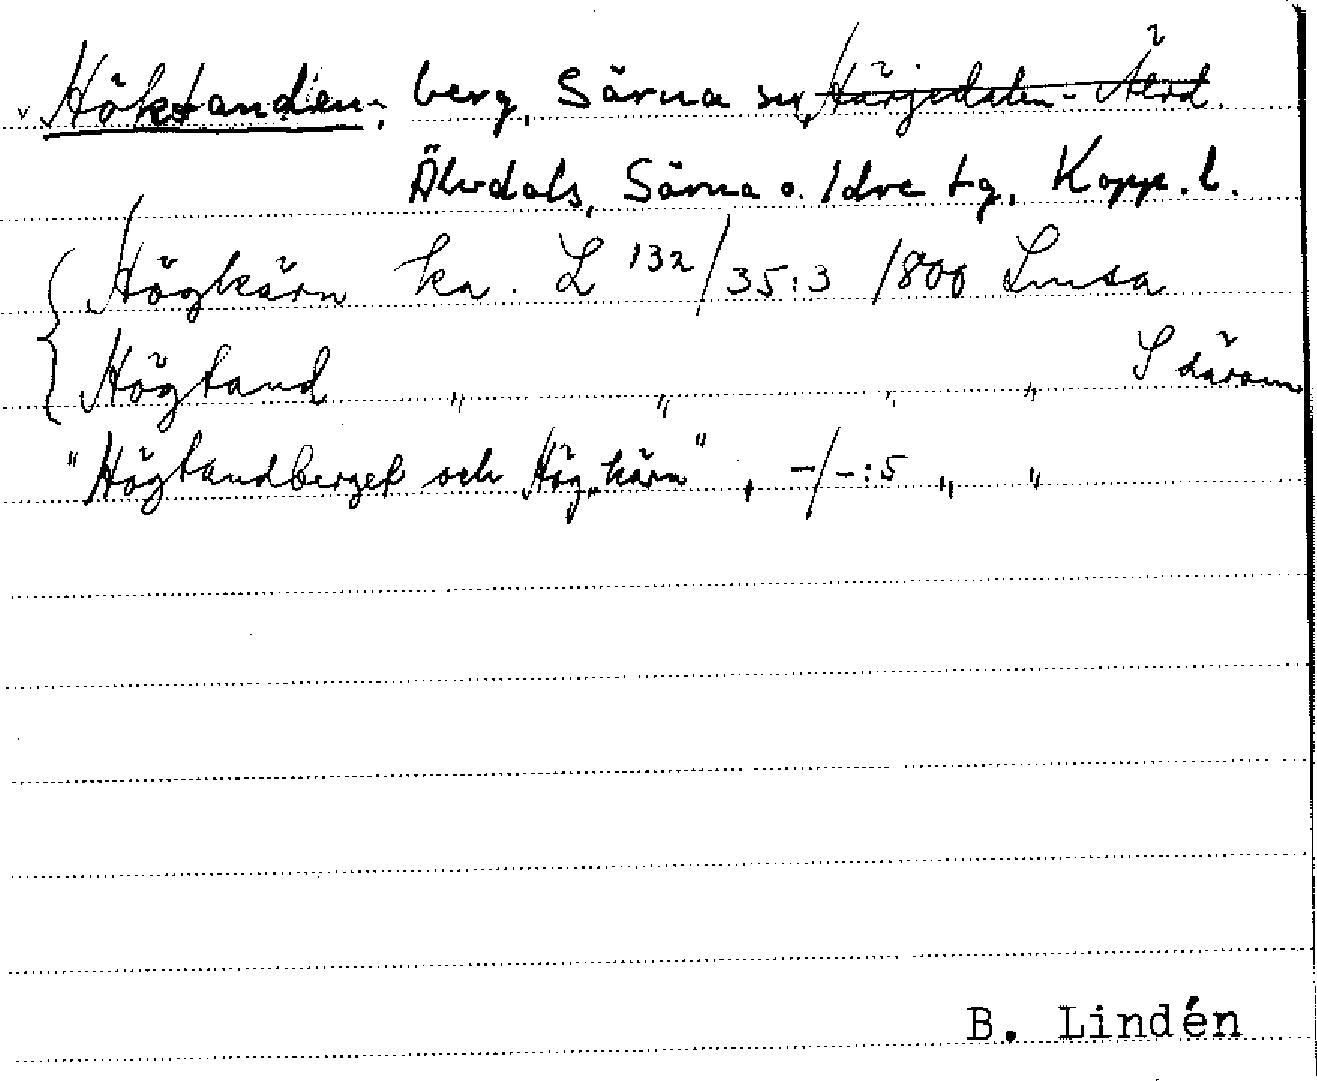 Höktanden, berg, Särna sn, Härjedalen - Älvd.
Älvdals, Särna o. Idre tg, Kopp. l.
Högkärn ka. L 132/35:3 1800 Lmsa
Högtand " " " " S därom
"Högtandberget och Högkärn", -/-:5 " "
B. Lindén